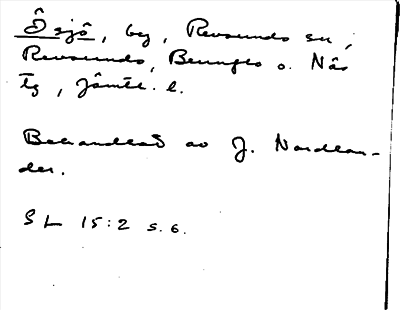 Ôsjô, by, Revsunds sn,
Revsunds, Brunflo o. Näs
tg, Jämtl. l.
Behandlat av J. Nordlan-
der.
SL 15:2 s. 6.